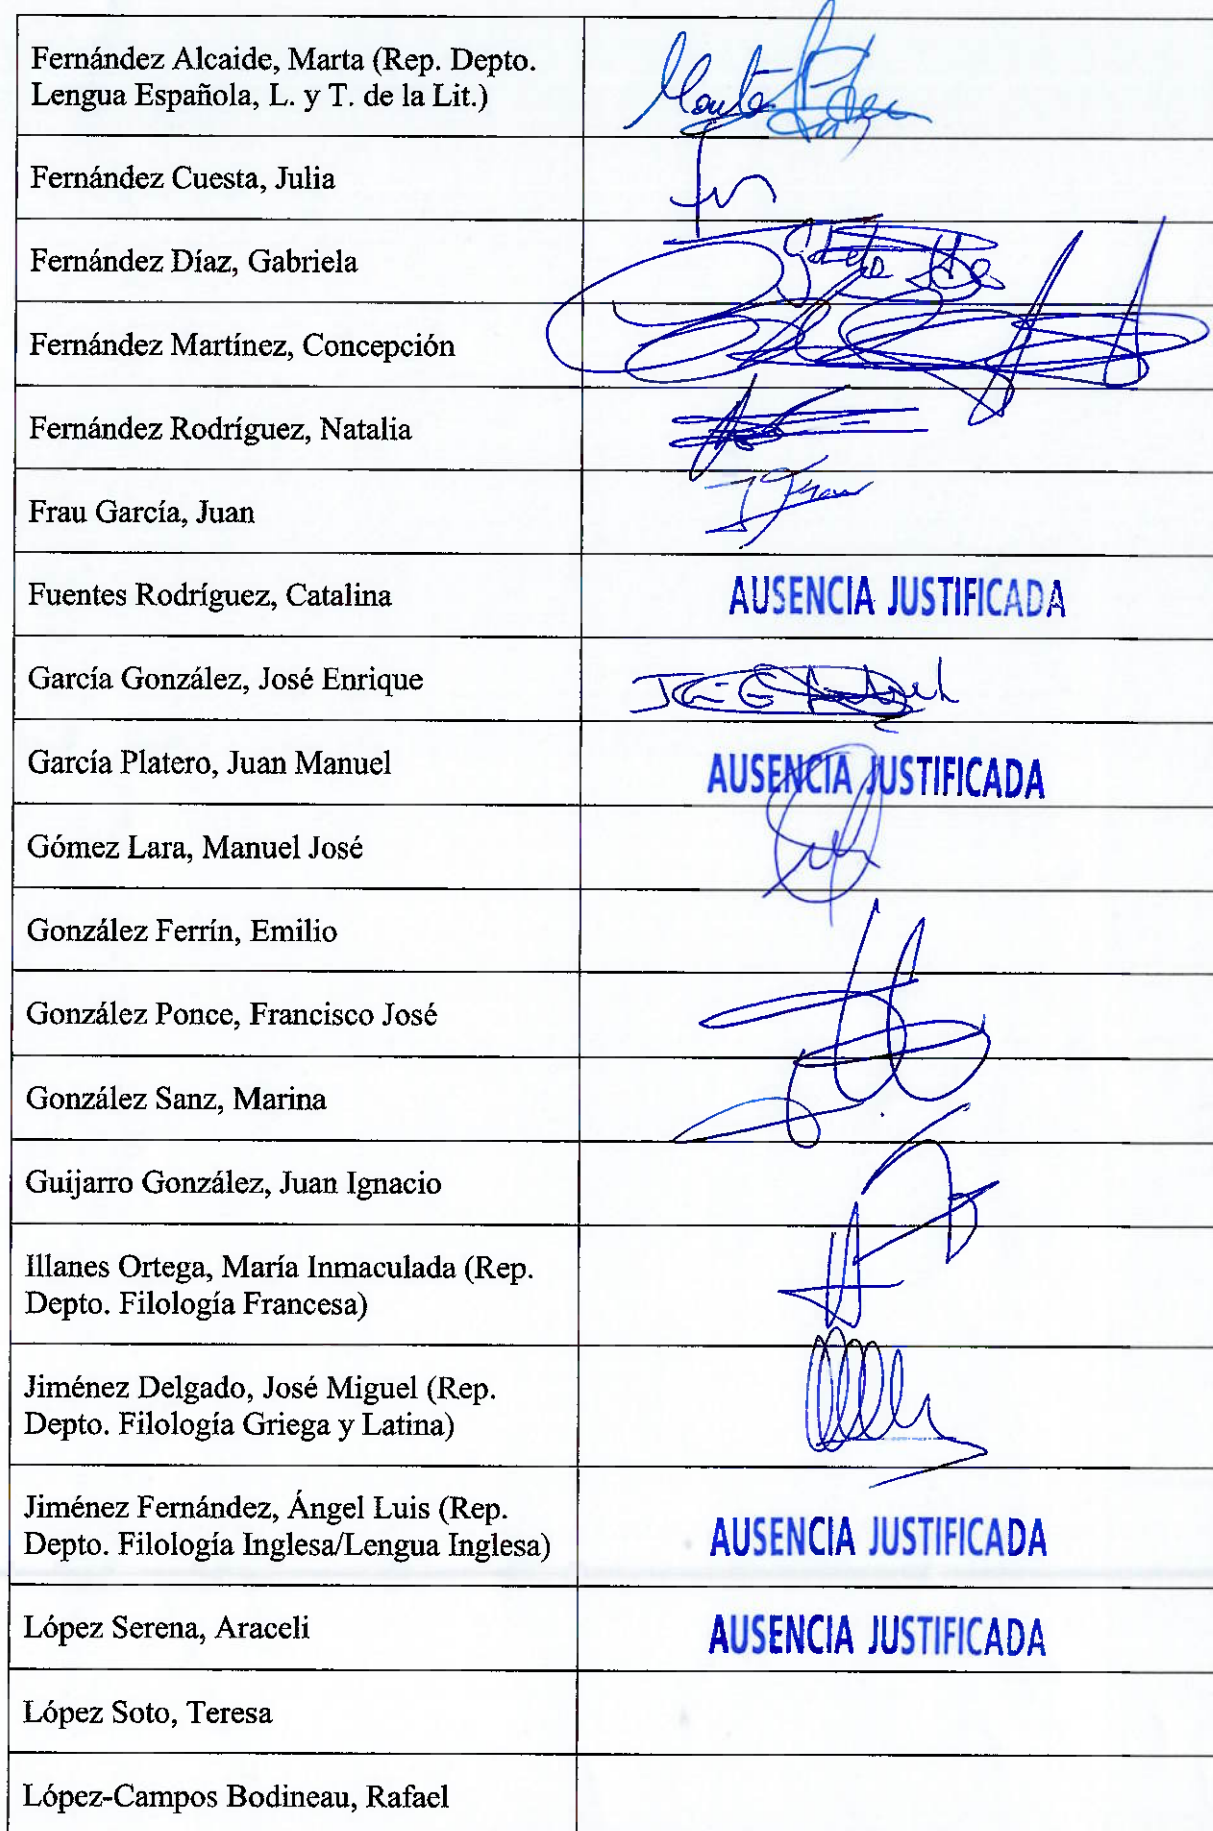 Fernández Alcaide, Marta (Rep. Depto.
Lengua Española, L. y T. de la Lit.)
Fernández Cuesta, Julia
Fernández Díaz, Gabriela
Fernández Martínez, Concepción
Fernández Rodríguez, Natalia
Frau García, Juan
Fuentes Rodríguez, Catalina
AUSENCIA JUSTIFICADA
García González, José Enrique
García Platero, Juan Manuel
AUSENCIA JUSTIFICADA
Gómez Lara, Manuel José
González Ferrín, Emilio
González Ponce, Francisco José
González Sanz, Marina
Guijarro González, Juan Ignacio
Illanes Ortega, María Inmaculada (Rep.
Depto. Filología Francesa)
Jiménez Delgado, José Miguel (Rep.
Depto. Filología Griega y Latina)
Jiménez Fernández, Ángel Luis (Rep.
Depto. Filología Inglesa/Lengua Inglesa)
AUSENCIA JUSTIFICADA
López Serena, Araceli
AUSENCIA JUSTIFICADA
López Soto, Teresa
López-Campos Bodineau, Rafael